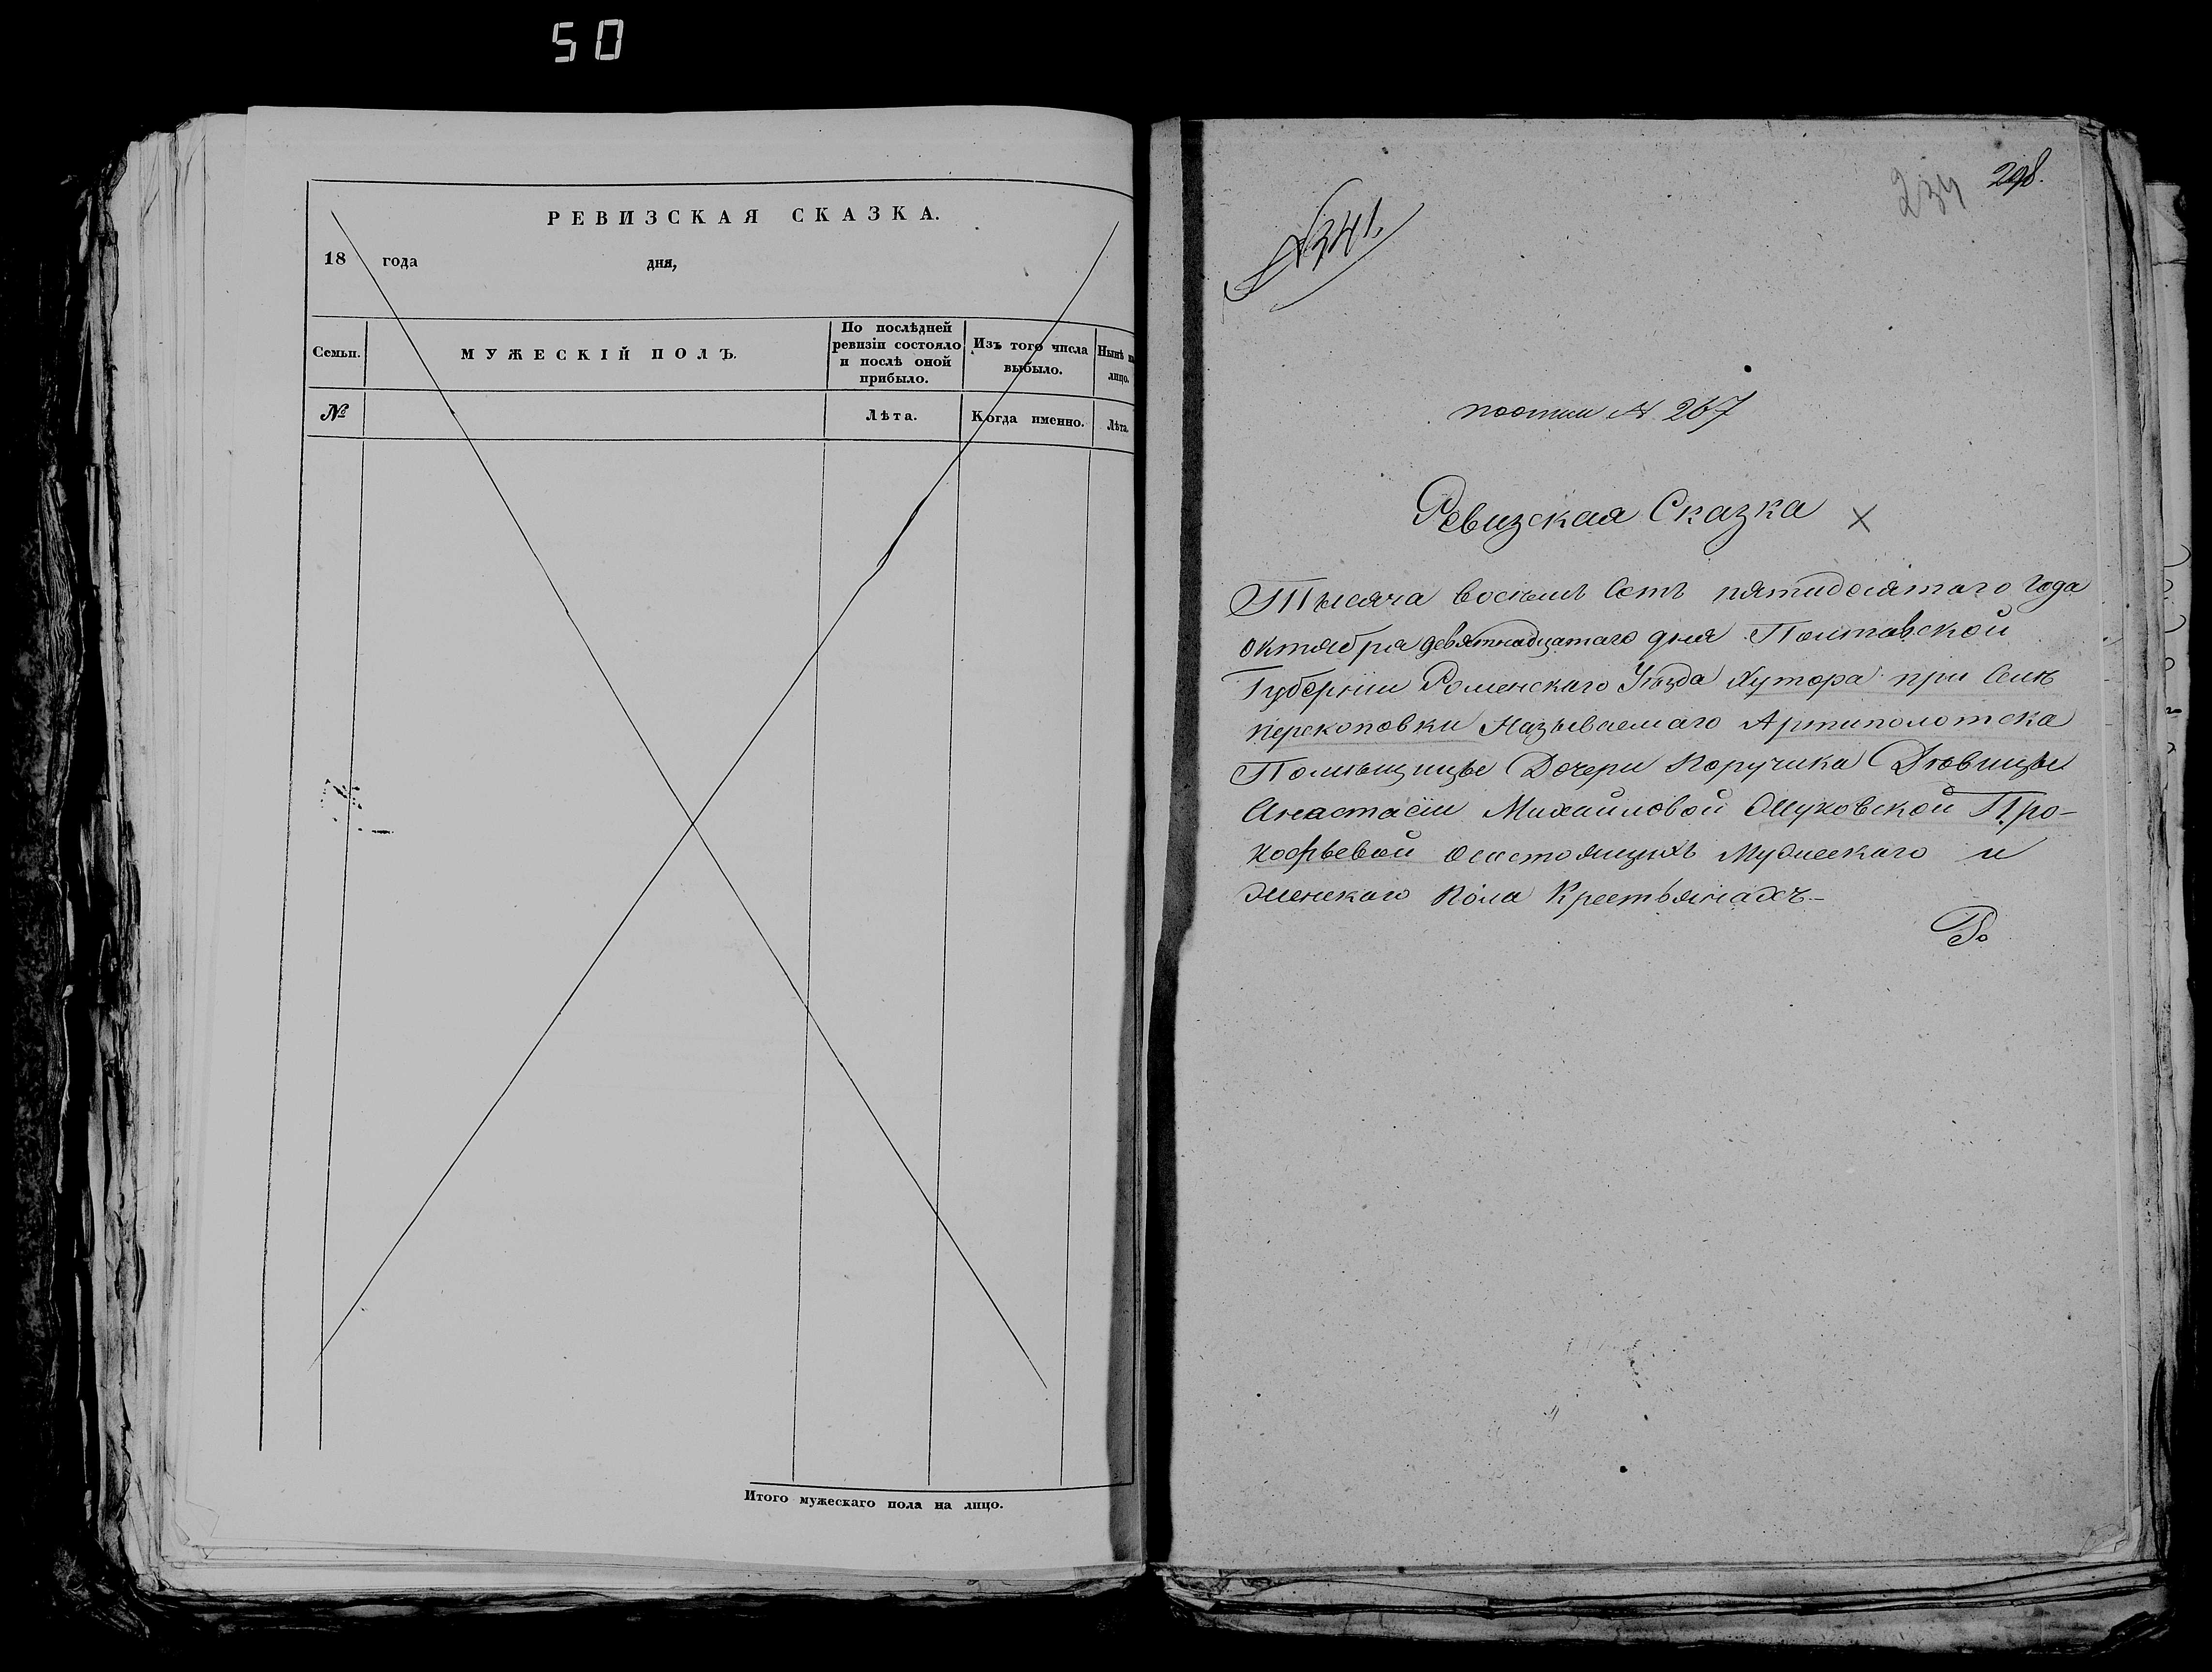 50
РЕВИЗСКАЯ СКАЗКА.
18 года дня,
Семьи.
МУЖЕСКІЙ ПОЛЪ.
По послѣдней
ревизіи состояло
и послѣ оной
прибыло.
Изъ того числа
выбыло.
Нынѣ на
лицо.
№
Лѣта.
Когда именно.
Лѣта.
Итого мужескаго пола на лицо.
234 298.
№341.
№ 267
Ревизская Сказка
Тысяча восемь Сотъ пятидесятаго года
октября девятнадцатаго дня Полтавской
Губерніи Роменскаго Уѣзда Хутора при Селѣ
Перекоповки Называемаго Артиполотска
Помѣщицы Дочери Поручика Дѣвицы
Анастасіи Михайловой Про-
кофьевой о состоящихъ Мужескаго и
Женскаго Пола Крестьянахъ.-